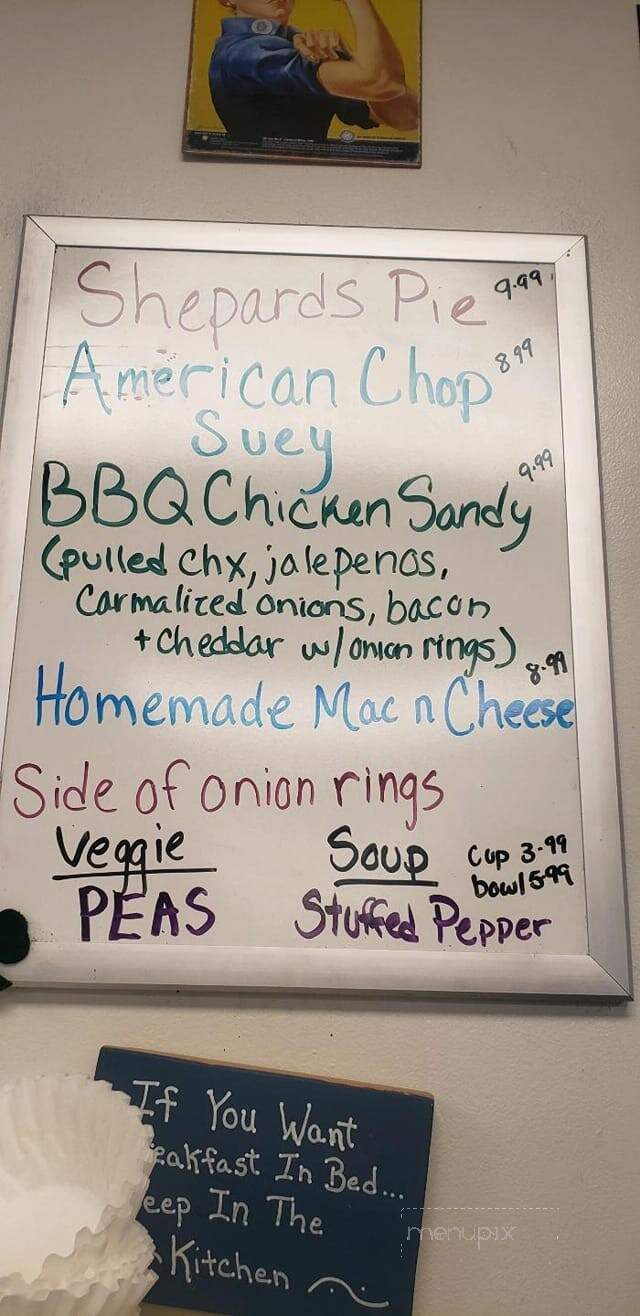 Shepards Pie 9.99
American Chop 8 99
Suey
BBQ Chicken Sandy 9.99
(pulled chx, jalepenos,
Carmalized onions, bacon
+ cheddar w/ onion rings)
Homemade Mac n Cheese 8.99
Side of onion rings
Veggie Soup Cup 3.99
bowl 5.99
PEAS Stuffed Pepper
If You Want
eakfast In Bed...
eep In The
Kitchen
menupix